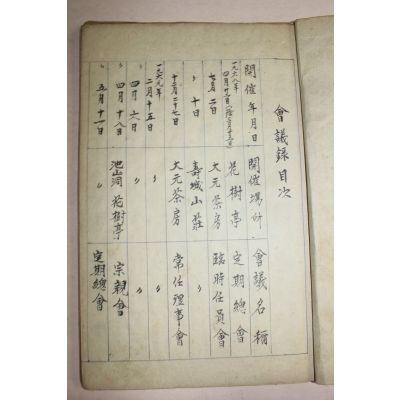 會議錄目次
開催年月日 開催場所 會議名稱
一九六八年
四月十三日 花樹亭 定期總會
七月二日 大元茶房 臨時任員會
〃 十日 壽城山莊 〃
十二月二十七日 大元茶房 常任理事會
一九六九年
二月十五日 〃 〃
〃 四月六日 〃 〃
〃 四月十八日 池山洞花樹亭 宗親會
〃 五月十一日 〃 定期總會